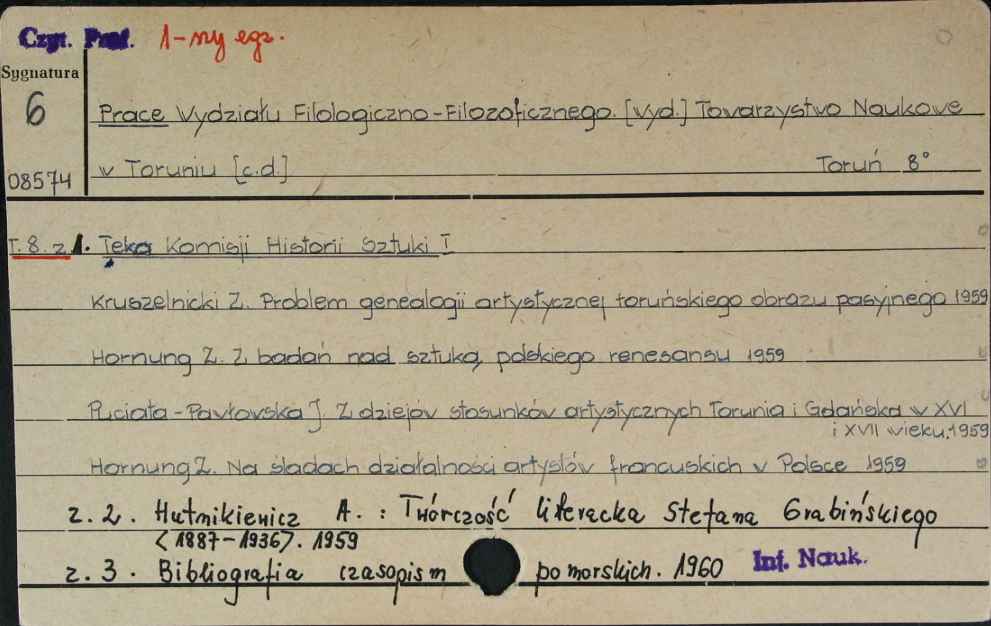 Czyt. Prof. 1-ny egz.
Sygnatura
6
08574
Prace Wydziału Filologiczno-Filozoficznego. [Wyd.] Towarzystwo Naukowe
w Toruniu [c.d.] Toruń 8°
T. 8. z 1. Teka Komisji Historii Sztuki I
Kruszelnicki Z. Problem genealogii artystycznej toruńskiego obrazu pasyjnego 1959
Hornung Z. Z badań nad sztuką polskiego renesansu 1959
Puciata-Pawłowska J. Z dziejów stosunków artystycznych Torunia i Gdańska w XVI
i XVII wieku. 1959
Hornung Z. Na śladach działalności artystów francuskich w Polsce 1959
z. 2. Hutnikiewicz A. : Twórczość literacka Stefana Grabińskiego
<1887-1936>. 1959
z. 3. Bibliografia czasopism pomorskich. 1960 Inf. Nauk.